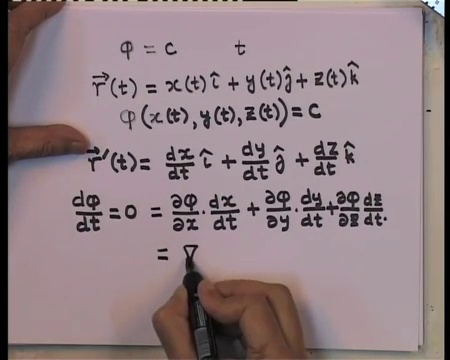 φ = c t
r⃗(t) = x(t) î + y(t) ĵ + z(t) k̂
φ(x(t), y(t), z(t)) = c
r⃗'(t) = dx/dt î + dy/dt ĵ + dz/dt k̂
dφ/dt = 0 = ∂φ/∂x · dx/dt + ∂φ/∂y · dy/dt + ∂φ/∂z dz/dt.
= ∇